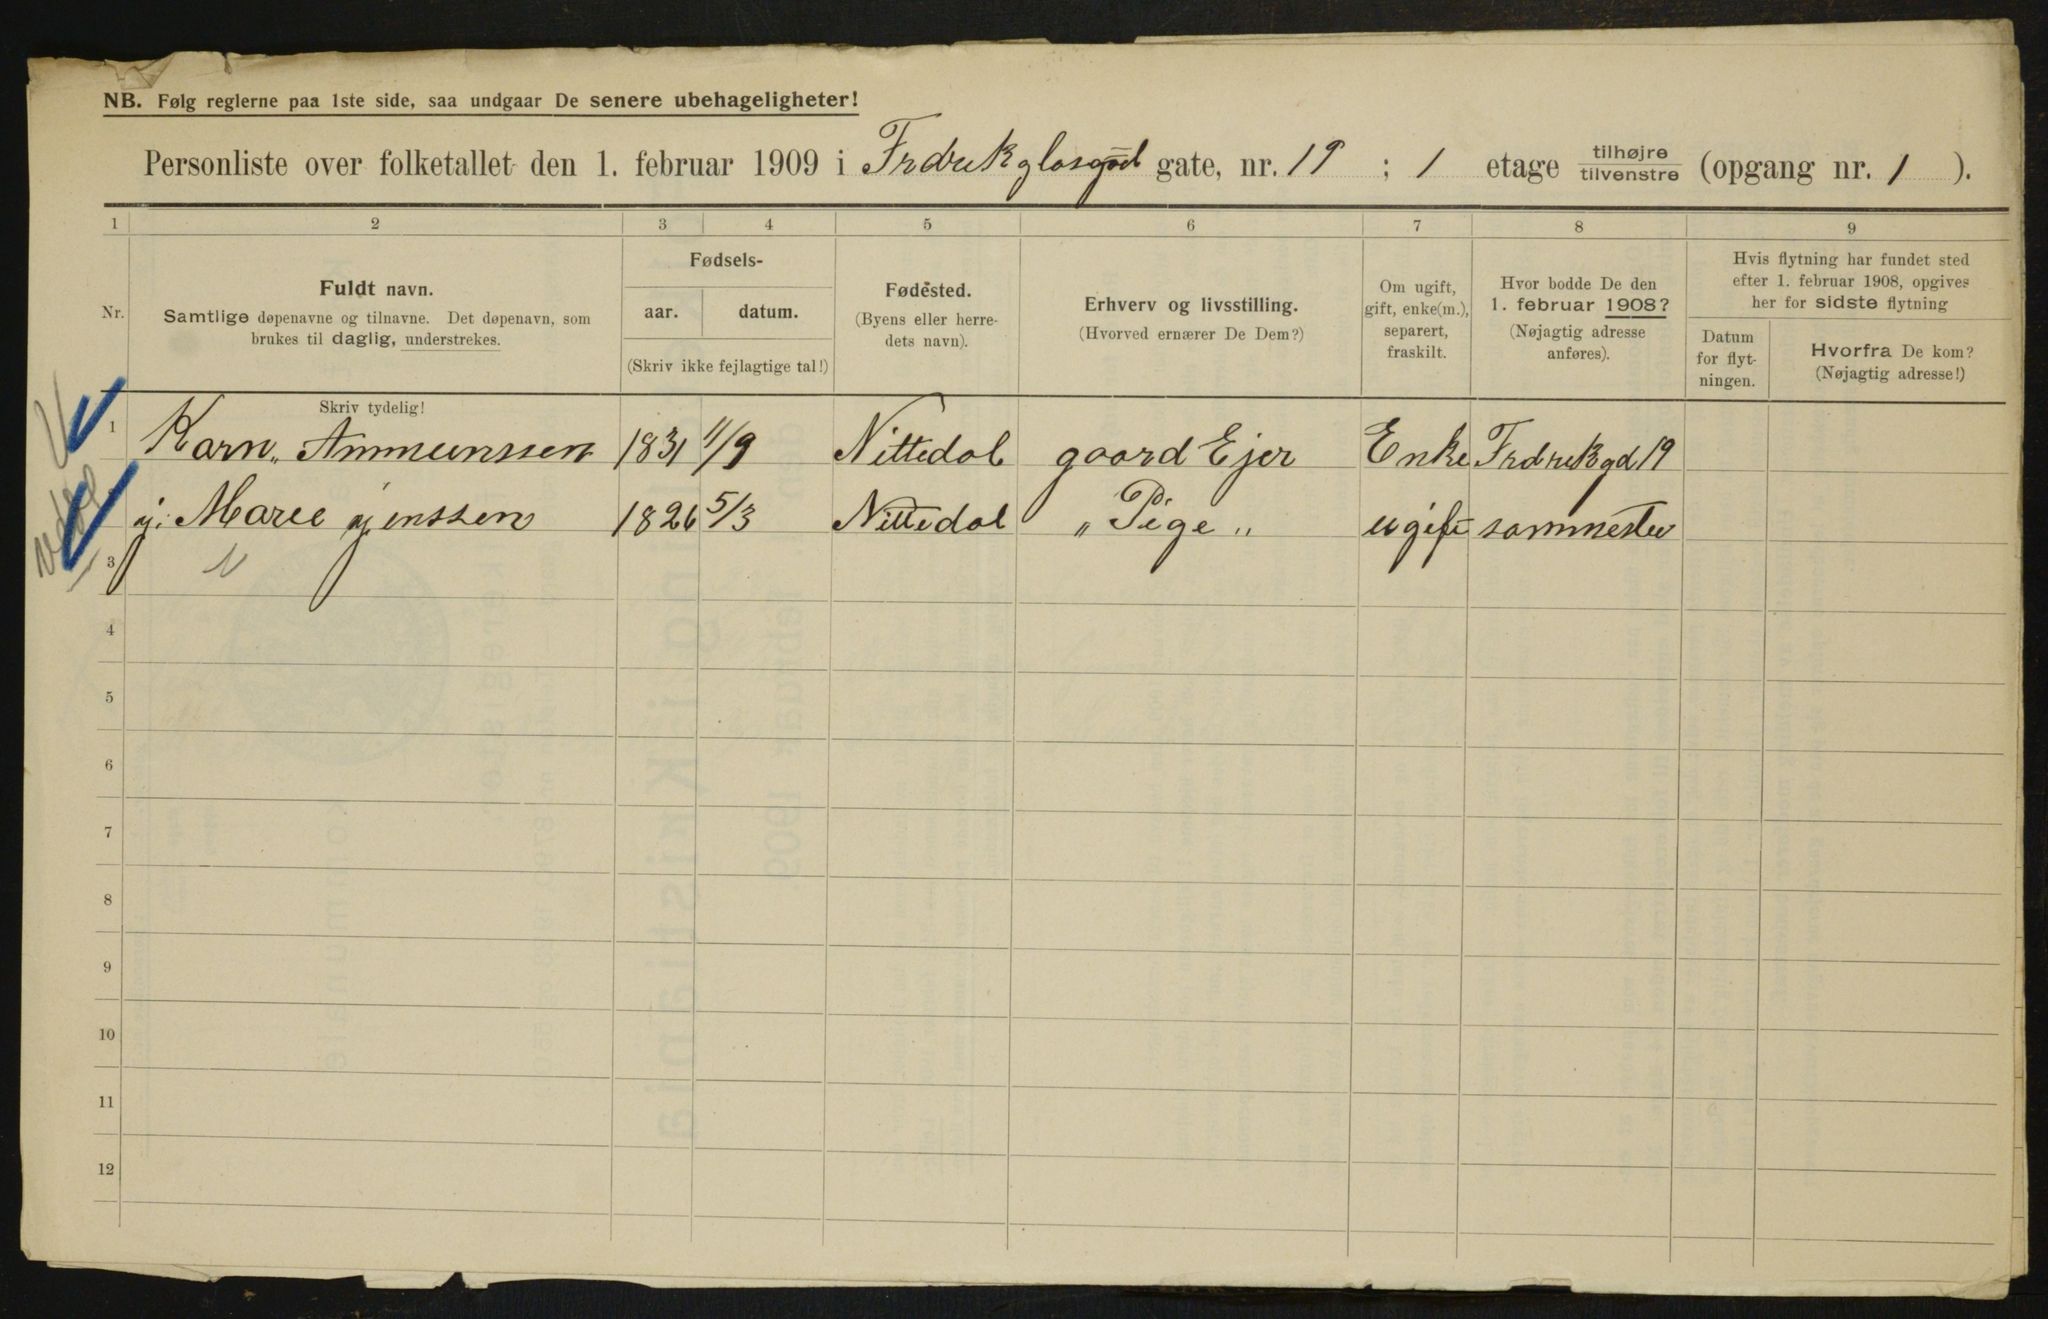 NB. Følg reglerne paa 1ste side, saa undgaar De senere ubehageligheter!
Personliste over folketallet den 1. februar 1909 i gate, nr. 19 ; 1 etage tilhøjre tilvenstre (opgang nr. 1 ).
1 2 3 4 5 6 7 8 9
Nr.
Fuldt navn.
Samtlige døpenavne og tilnavne. Det døpenavn, som
brukes til daglig, understrekes.
Fødsels-
aar. datum.
(Skriv ikke fejlagtige tal!)
Fødested.
(Byens eller herre-
dets navn).
Erhverv og livsstilling.
(Hvorved ernærer De Dem?)
Om ugift,
gift, enke(m.),
separert,
fraskilt.
Hvor bodde De den
1. februar 1908?
(Nøjagtig adresse
anføres).
Hvis flytning har fundet sted
efter 1. februar 1908, opgives
her for sidste flytning
Datum
for flyt-
ningen.
Hvorfra De kom?
(Nøjagtig adresse!)
Skriv tydelig!
1 Karn Ammunssen 1831 11/9 Nittedal gaard Ejer Enke Frdrekgd 19
j. Maree jenssen 1826 5/3 Nittedal " Pige " ugift sammested
3
4
5
6
7
8
9
10
11
12